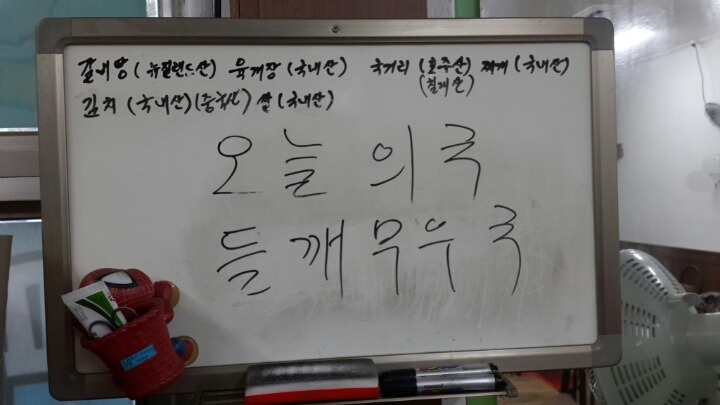 갈비탕 (뉴질랜드산) 육개장 (국내산) 국거리 (호주산) 찌개 (국내산)
(칠레산)
김치 (국내산)(중국산) 쌀 (국내산)
오늘의국
들깨무우국